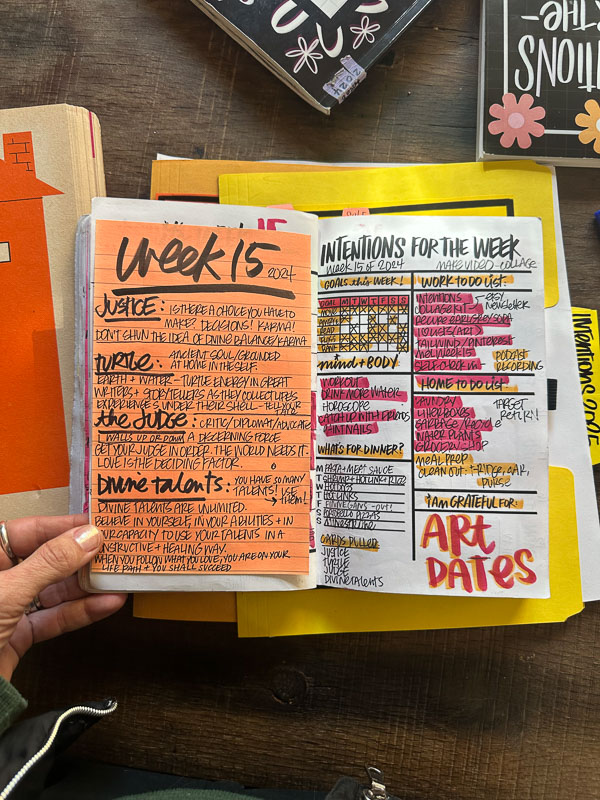 2024
INTENTIONS
-THE-
Week 15 2024
JUSTICE: IS THERE A CHOICE YOU HAVE TO
MAKE? DECISIONS! KARMA!
DON'T SHUN THE IDEA OF DIVINE BALANCE/KARMA
turtle: ANCIENT SOUL/GROUNDED
AT HOME IN THE SELF.
EARTH + WATER - TURTLE ENERGY IN GREAT
WRITERS + STORYTELLERS AS THEY COLLECT LIFE'S
EXPERIENCES UNDER THEIR SHELL - TELL YOUR
the JUDGE: CRITIC/DIPLOMAT/ADVOCATE
WALLS UP OR DOWN A DISCERNING FORCE
GET YOUR JUDGE IN ORDER. THE WORLD NEEDS IT.
LOVE IS THE DECIDING FACTOR.
Divine talents: YOU HAVE SO MANY
TALENTS! USE
them!
DIVINE TALENTS ARE UNLIMITED.
BELIEVE IN YOURSELF, IN YOUR ABILITIES + IN
YOUR CAPACITY TO USE YOUR TALENTS IN A
CONSTRUCTIVE + HEALING WAY.
WHEN YOU FOLLOW WHAT YOU LOVE, YOU ARE ON YOUR
LIFE PATH + YOU SHALL SUCCEED
15
INTENTIONS FOR THE WEEK
Week 15 of 2024
MAKE VIDEO - COLLAGE
GOALS this WEEK!
GOAL M T W T F S S
READ
mind + BODY
WORKOUT
DRINK MORE WATER
HOROSCOPE
CATCH UP WITH FRIENDS
PAINT NAILS
WHAT'S FOR DINNER?
M PASTA + MEAT SAUCE
T SHRIMP + HOT LINK + RICE
W
T HOTLINKS
F
S
S
CARDS PULLED
JUSTICE
TURTLE
JUDGE
DIVINE TALENTS
WORK TO DO LIST
INTENTIONS
COLLAGE KIT
EASY
NEWSLETTER
LISTS/ART
TAILWIND/PINTEREST
MEL WEEK 15
SELF CHECK IN
PODCAST
RECORDING
HOME TO DO LIST
LAUNDRY
4 HERBOXES
GARBAGE/RECYCLE
WATER PLANTS
GROCERY SHOP
TARGET
RETURN!
MEAL PREP
CLEAN OUT: FRIDGE, CAR,
PURSE
I AM GRATEFUL FOR:
ART
DATES
INTENTIONS 2024